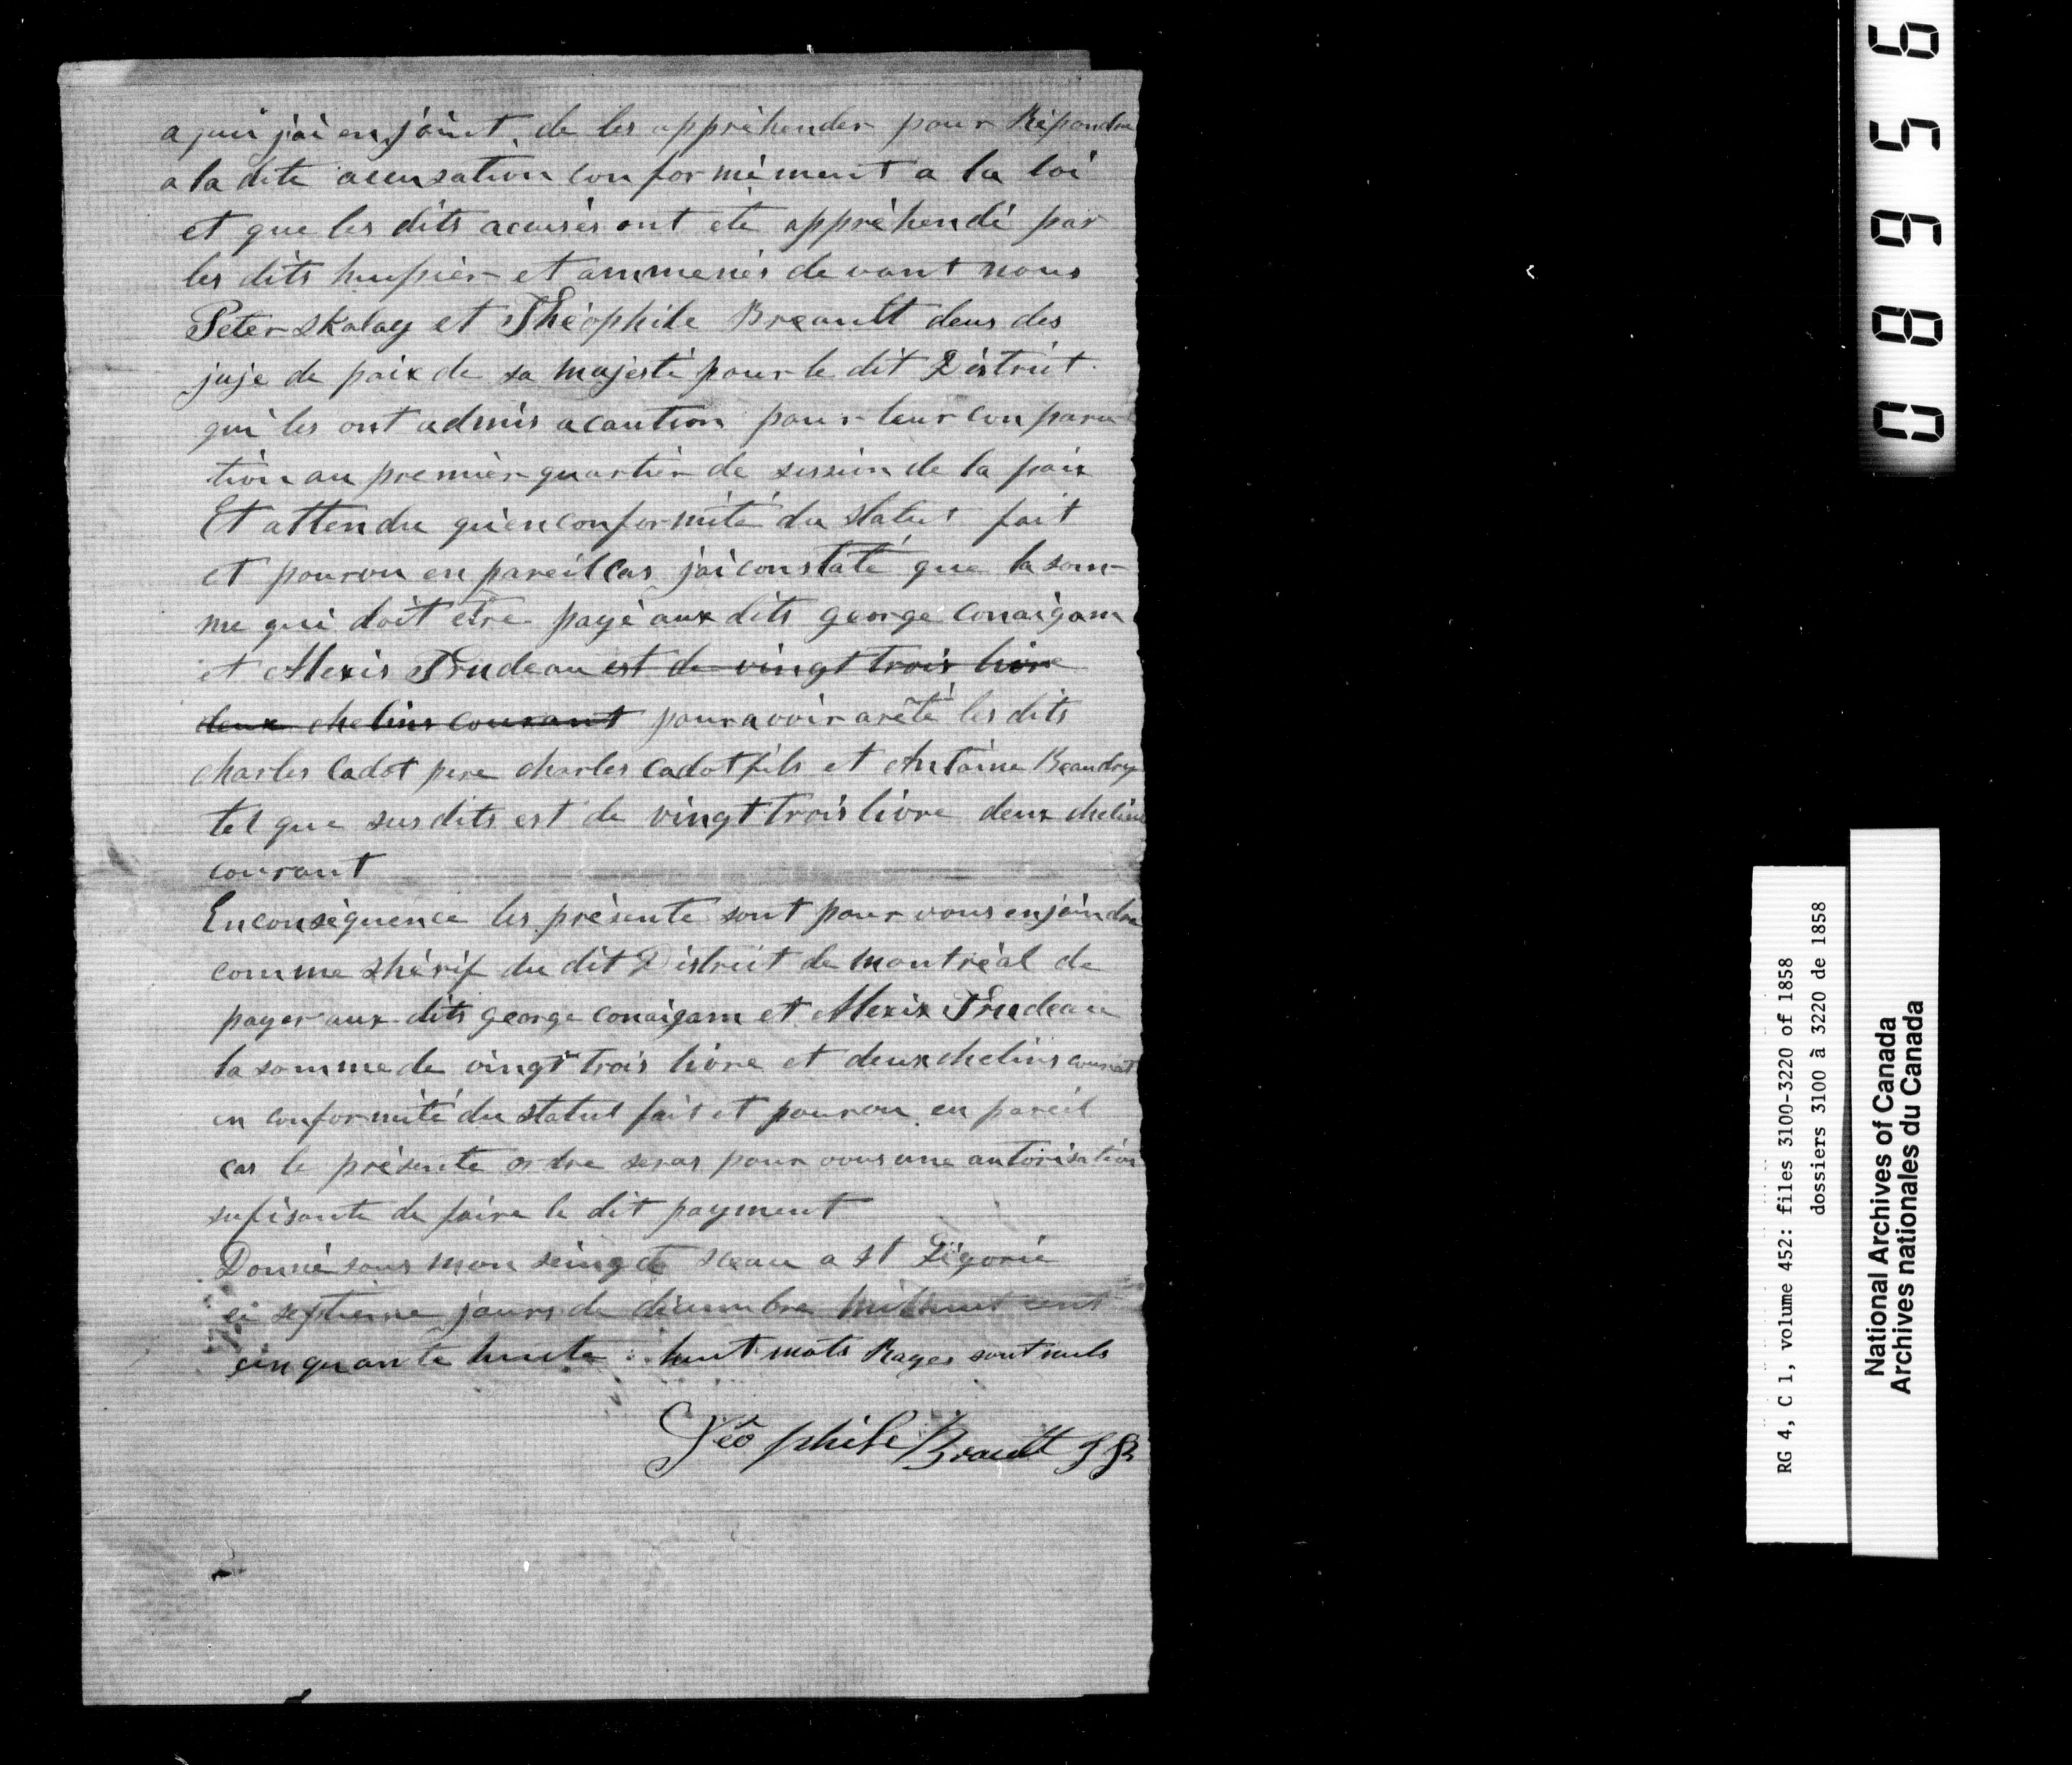 a qui j'ai enjoint de les appréhender pour Répondre
a la dite accusation conformément a la loi
et que les dits accusés ont été appréhendé par
les dits huissier et ammenés devant nous
Peter Skalay et Théophile Breault deus des
juje de paix de sa majesté pour le dit District
qui les ont admis a caution pour leur conparu-
tion au premier quartier de session de la paix
Et attendu qu'en conformité du statut fait
et pourvu en pareil cas j'ai constaté que la som-
me qui doit etre payé aux dits george Conaigam
et Alexis Trudeau est de vingt trois livre
deux chelins courant pour avoir arêté les dits
charles Cadot pere charles Cadot fils et Antoine Beaudry
tel que sus dits est de vingt trois livre deux chelins
courant
En conséquence les présente sont pour vous enjoindre
comme shérif du dit District de montréal de
payer aux dits george conaigam et Alexis Trudeau
la somme de vingt trois livre et deux chelins courant
en conformité du statut fait et pourvu en pareil
cas le présente ordre seras pour vous une autorisation
sufisante de faire le dit payment
Donné sous mon seing et sceau a st Ligorie
ce septieme jours de décembre mil huit cent
cinquante huite huit mots Rayes sont nuls
Téophile Breault J P
08956
RG 4, C 1, volume 452: files 3100-3220 of 1858
dossiers 3100 à 3220 de 1858
National Archives of Canada
Archives nationales du Canada